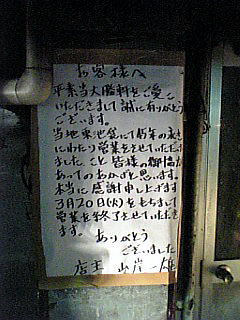 お客様へ
平素当大勝軒をご愛こ
いただきまして誠に有りがとう
ございます。
当地東池袋にて45年の永き
にわたり営業をさせていただき
ましたこと皆様の御協力
あってのおかげと思います。
本当に感謝申し上げます
3月20日(火)をもちまして
営業を終了させていただき
ます。
ありがとう
ございました
店主 山岸一雄